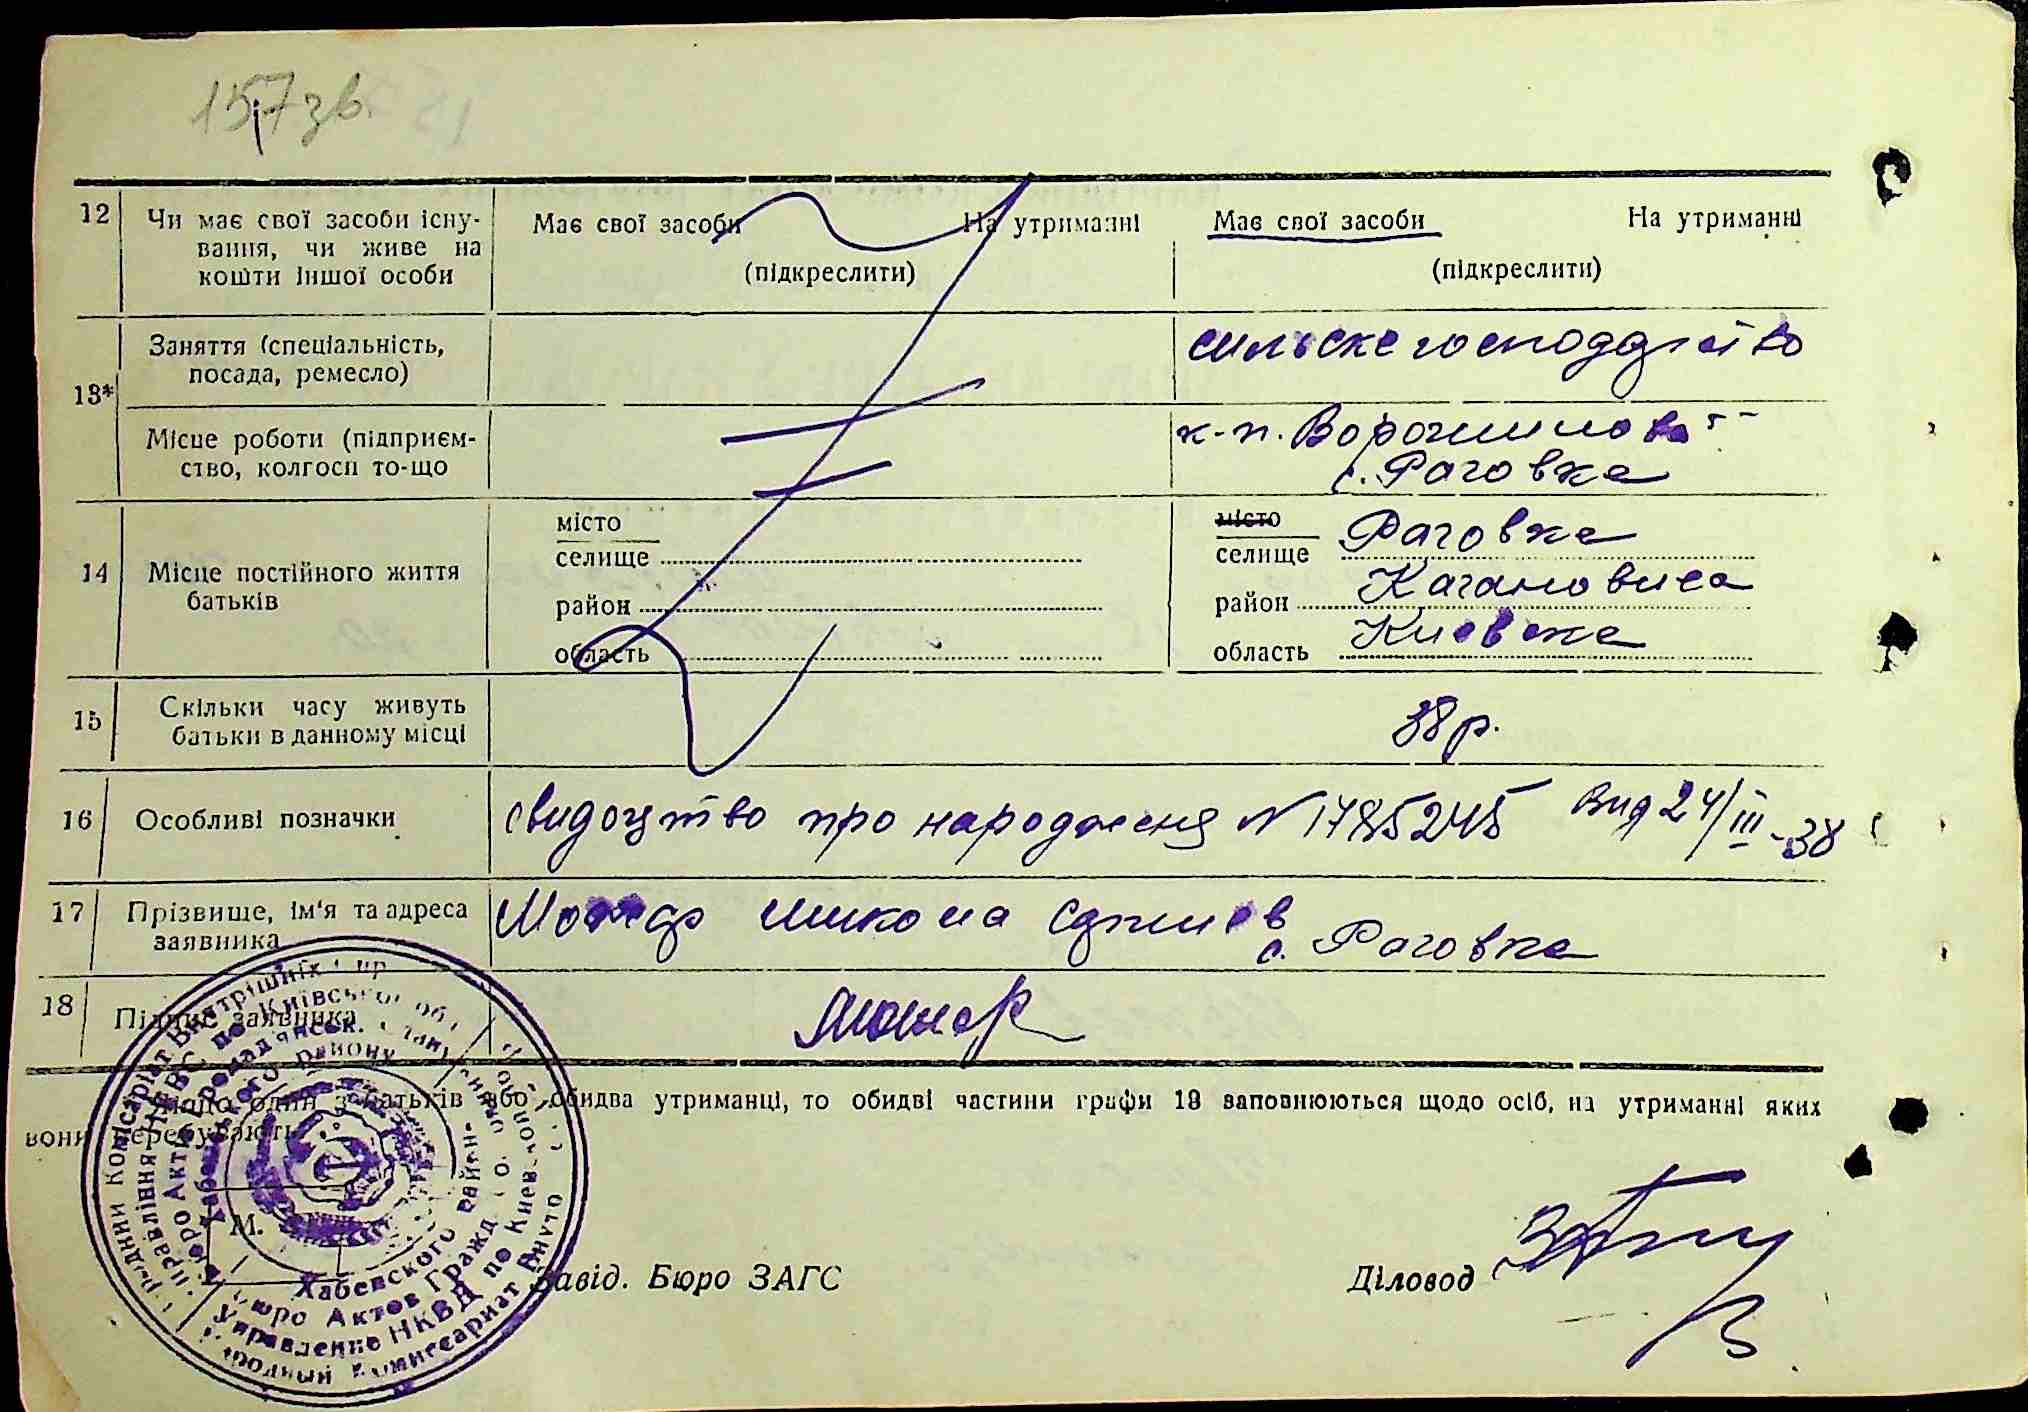 157 зв.
12 Чи має свої засоби існу-
вання, чи живе на
кошти іншої особи
Має свої засоби На утриманні
(підкреслити)
Має свої засоби На утриманні
(підкреслити)
13*
Заняття (спеціальність,
посада, ремесло)
сильске господарство
Місце роботи (підприєм-
ство, колгосп то-що
к-п. Ворошилова
с. Раговка
14 Місце постійного життя
батьків
місто
селище
район
область
місто
селище Раговка
район Кагановича
область Киевска
15 Скільки часу живуть
батьки в данному місці
38 р.
16 Особливі позначки
свидоцтво про народженя N 1785245 вид 24/III-38
17 Прізвище, ім'я та адреса
заявника
Микола
с. Раговка
18 Підпис заявника
Якщо один з батьків або обидва утриманці, то обидві частини графи 13 заповнюються щодо осіб, на утриманні яких
вони перебувають
М.
Завід. Бюро ЗАГС
Діловод
Народний Комісаріат Внутрішніх Спр
Управління НКВС по Київській обл
Бюро Актів Громадянськ. Стану
Хабенського району
Хабенского район
Бюро Актов Гражд
Управление НКВД по Киев
Народный Комиссариат Внут